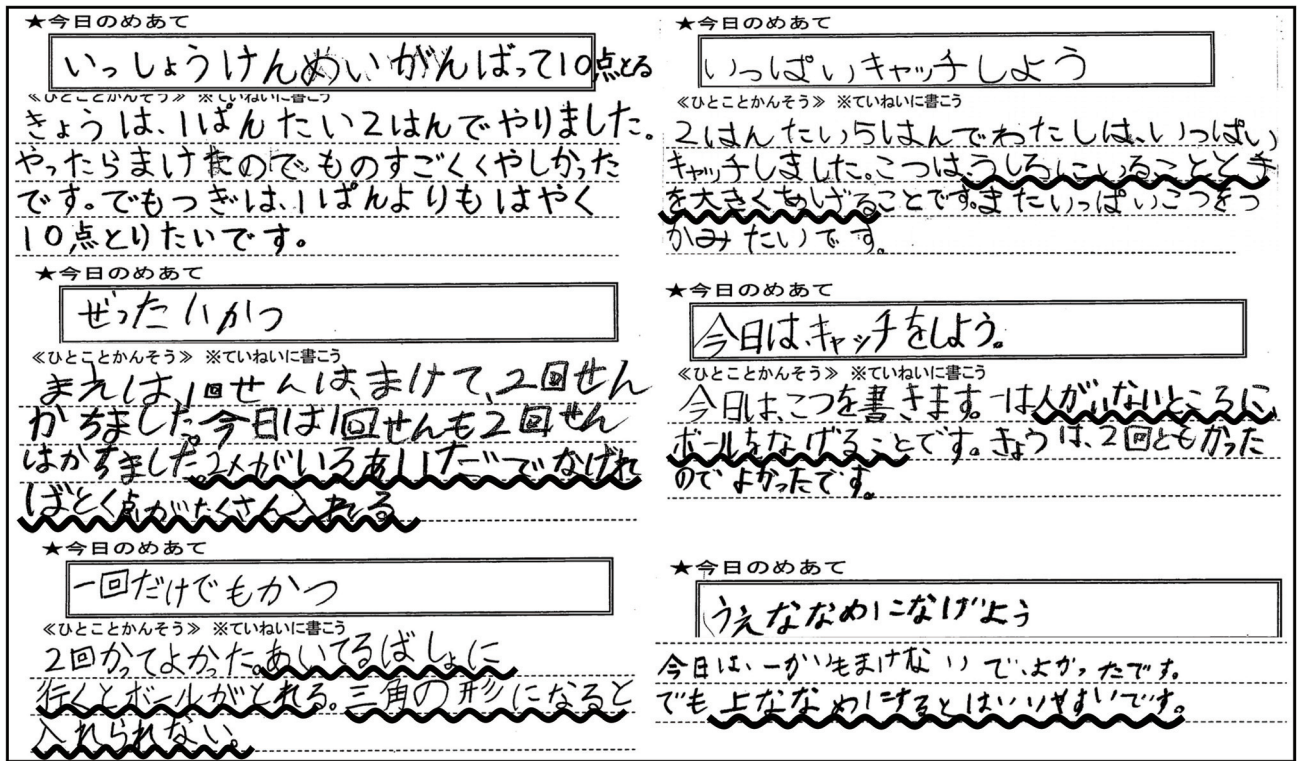 ★今日のめあて
いっしょうけんめいがんばって10点とる
≪ひとことかんそう≫ ※ていねいに書こう
きょうは、1ぱんたい2はんでやりました。
やったらまけたのでものすごくくやしかった
です。でもつぎは、1ぱんよりもはやく
10点とりたいです。
★今日のめあて
ぜったいかつ
≪ひとことかんそう≫ ※ていねいに書こう
まえは、1回せんは、まけて、2回せん
かちました。今日は1回せんも2回せん
はかちました。2人がいるあいだでなげれ
ばとく点がたくさん入れる
★今日のめあて
一回だけでもかつ
≪ひとことかんそう≫ ※ていねいに書こう
2回かってよかった。あいてるばしょに
行くとボールがとれる。三角の形になると
入れられない。
★今日のめあて
いっぱいキャッチしよう
≪ひとことかんそう≫ ※ていねいに書こう
2はんたい5はんでわたしは、いっぱい
キャッチしました。こつは、うしろにいることと手
を大きくあげることです。またいっぱいこつをつ
かみたいです。
★今日のめあて
今日は、キャッチをしよう。
≪ひとことかんそう≫ ※ていねいに書こう
今日は、こつを書きます。一は人がいないところに
ボールをなげることです。きょうは、2回ともかった
のでよかったです。
★今日のめあて
うえななめになげよう
今日は、一かいもまけないで、よかったです。
でも上ななめにするとはいりやすいです。